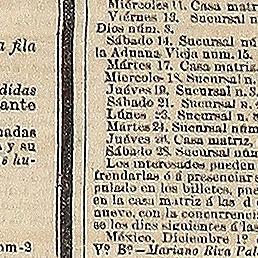 a fila
didas
ante
nadas
y su
s hu-
om-2
Miércoles 11. Casa matr
Viérnes 13. Sucursal n
Dios núm. 3.
Sábado 14. Sucursal nú
la Aduana Vieja núm. 15.
Mártes 17. Casa matriz.
Miercoles 18. Sucursal n.
Juéves 19. Sucursal n. 3.
Sábado 21. Sucursal n.
Lúnes 23. Sucursal n. 8
Mártes 24. Sucursal núm
Juéves 26. Casa matriz,
Sábado 28. Sucursal núm
Los interesados pueden
frendarlas ó á presenciar
pulado en los billetes, pue
en la casa matriz á las d
nuevo, con la concurrenci
se los dias siguientes á las
México, Diciembre 1º d
Vº Bº—Mariano Riva Pal